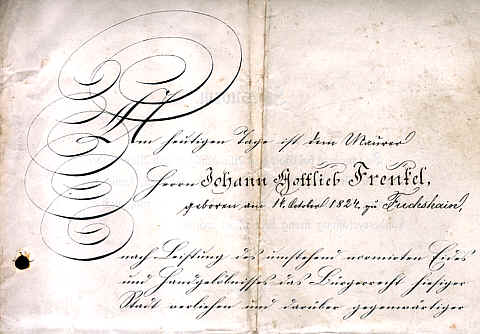 Am heutigen Tage ist dem Maurer
Herrn Johann Gottlieb Frenkel,
geboren am 14. October 1824. zu Fuchshain,
nach Leistung des umstehend normirten Eides
und Handgelöbnisses das Bürgerrecht hiesiger
Stadt verliehen und darüber gegenwärtiger